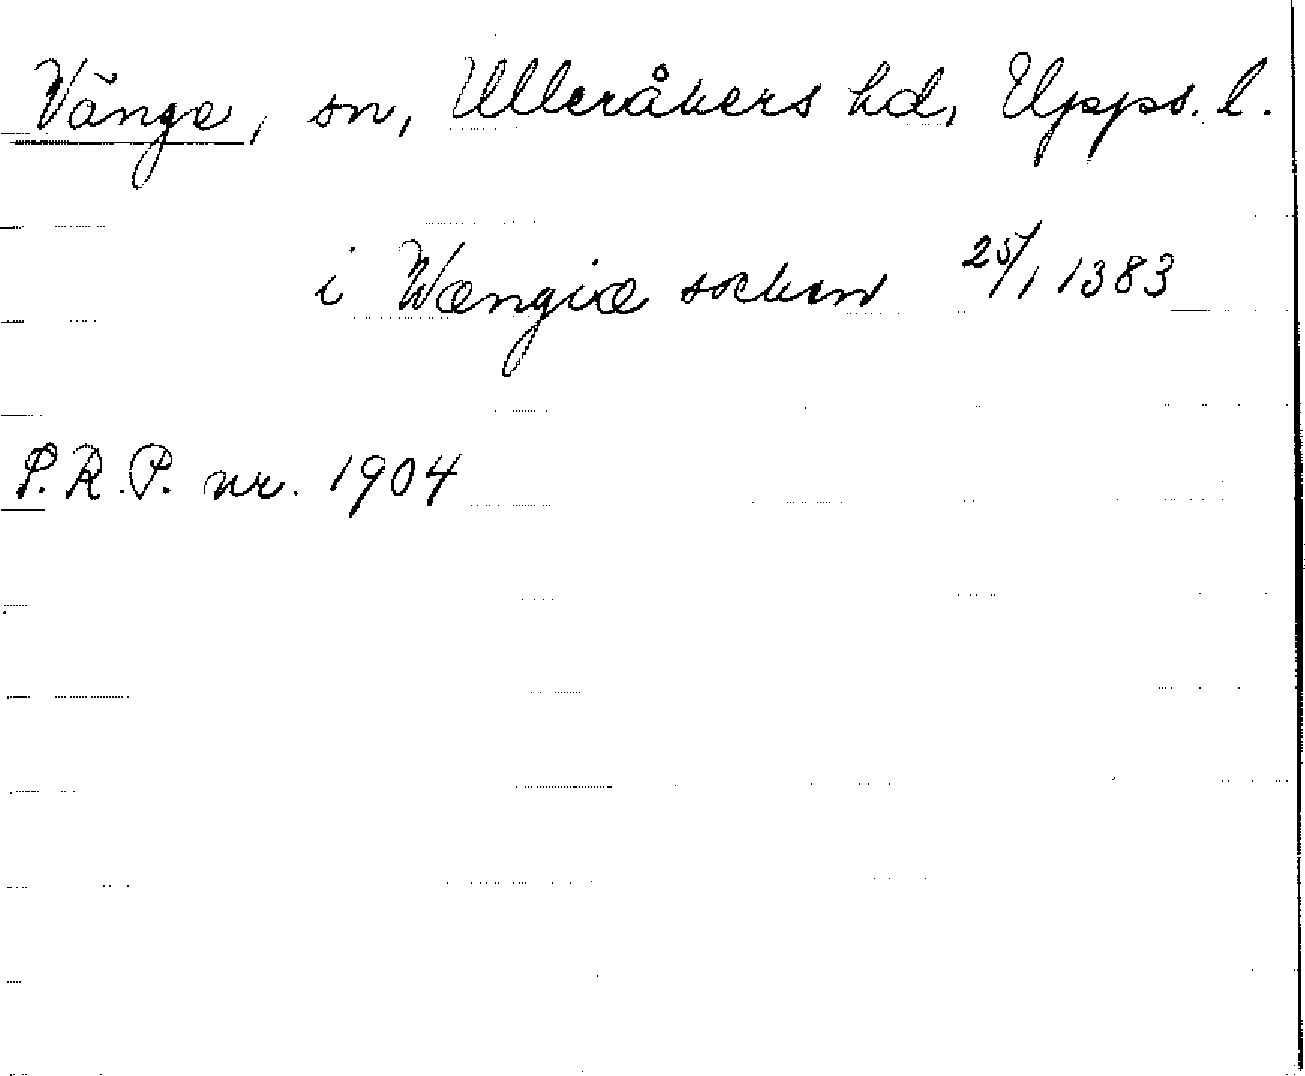 Vänge, sn, Ulleråkers hd, Upps. l.
i Wængiæ socken 25/1 1383
S.R.P. nr. 1904